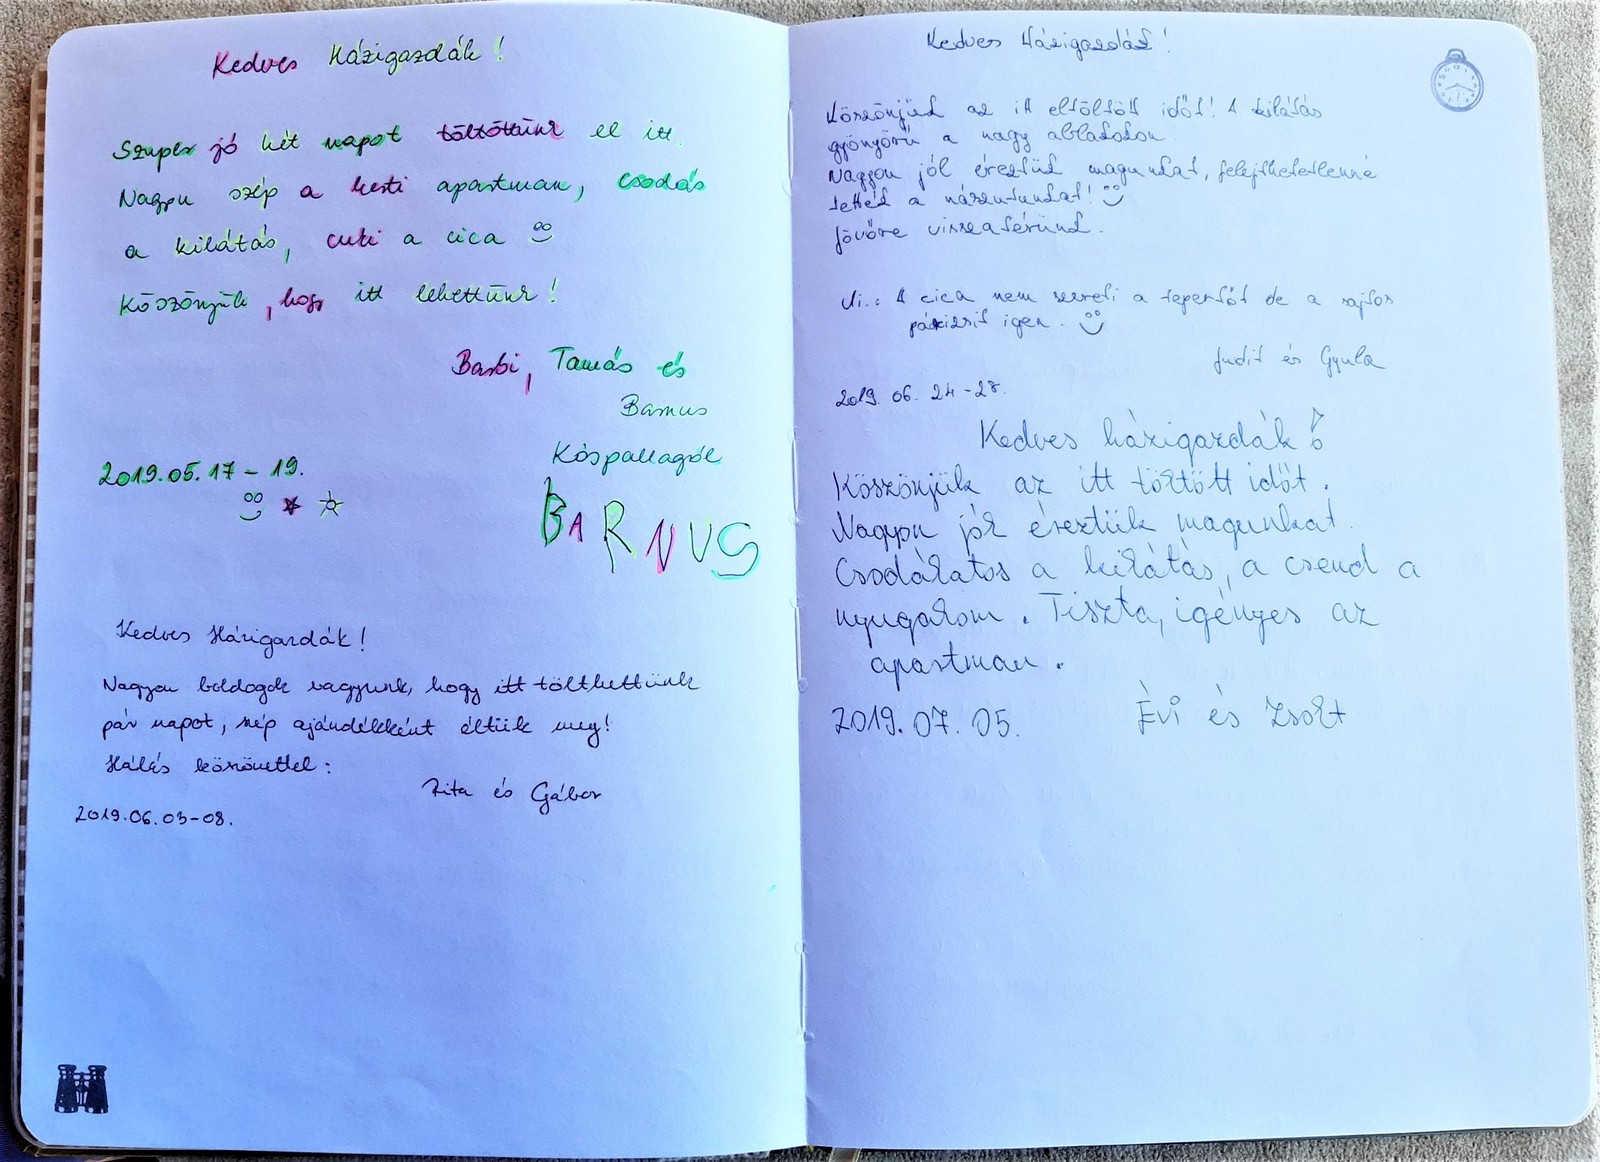 Kedves Házigazdák!
Szuper jó két napot töltöttünk el itt.
Nagyon szép a kerti apartman, csodás
a kilátás, cuki a cica
Köszönjük, hogy itt lehettünk!
Barbi, Tamás és
Barnus
Kóspallagról
2019.05.17-19.
BARNUS
Kedves Házigazdák!
Nagyon boldogok vagyunk, hogy itt tölthettünk
pár napot, szép ajándékként éltük meg!
Hálás köszönettel:
Zita és Gábor
2019.06.03-08.
Kedves Házigazdák!
Köszönjük az itt eltöltött időt! A kilátás
gyönyörű a nagy ablakokon.
Nagyon jól éreztük magunkat, felejthetetlenné
tették a nászutunkat!
Jövőre visszatérünk.
Ui.: A cica nem szereti a tepertőt de a sajtos
párizsit igen.
Judit és Gyula
2019. 06. 24-28.
Kedves házigazdák!
Köszönjük az itt töltött időt.
Nagyon jól éreztük magunkat.
Csodálatos a kilátás, a csend a
nyugalom. Tiszta, igényes az
apartman.
2019. 07. 05. Évi és Zsolt